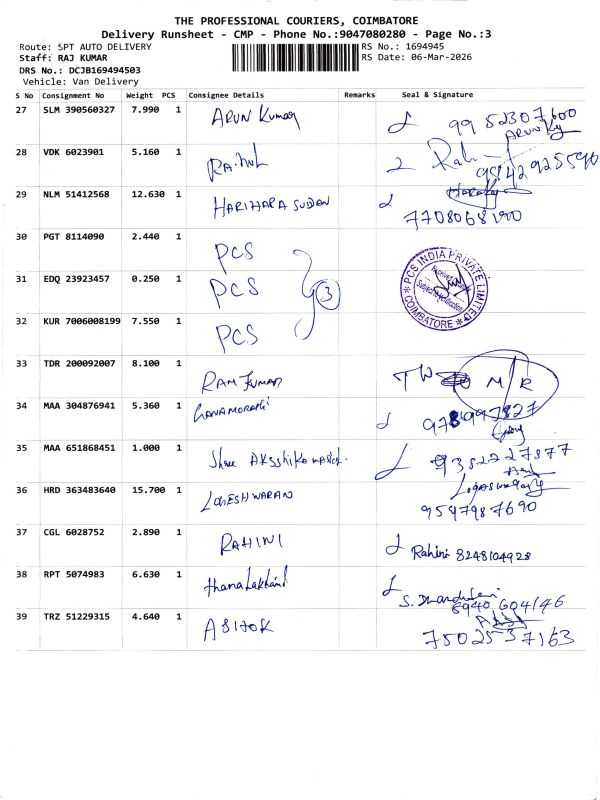 THE PROFESSIONAL COURIERS, COIMBATORE
Delivery Runsheet - CMP - Phone No.:9047080280 - Page No.:3
Route: SPT AUTO DELIVERY
RS No.: 1694945
Staff: RAJ KUMAR
RS Date: 06-Mar-2026
DRS No.: DCJB169494503
Vehicle: Van Delivery
S No Consignment No Weight PCS Consignee Details Remarks Seal & Signature
27 SLM 390560327 7.990 1 ARUN Kumar 9952307600
28 VDK 6023901 5.160 1 RAHUL
29 NLM 51412568 12.630 1 HARIHARA SUDAN
7708068190
30 PGT 8114090 2.440 1 PCS
31 EDQ 23923457 0.250 1 PCS 3 PCS INDIA PRIVATE LIMITED COIMBATORE
32 KUR 7006008199 7.550 1 PCS
33 TDR 200092007 8.100 1 RAM KUMAR
34 MAA 304876941 5.360 1
35 MAA 651868451 1.000 1 Shree 9352227877
36 HRD 363483640 15.700 1 LOGESHWARAN
9547987690
37 CGL 6028752 2.890 1 RAHINI Rahini 8248104928
38 RPT 5074983 6.630 1
8940604146
39 TRZ 51229315 4.640 1 ASHOK
7502537163